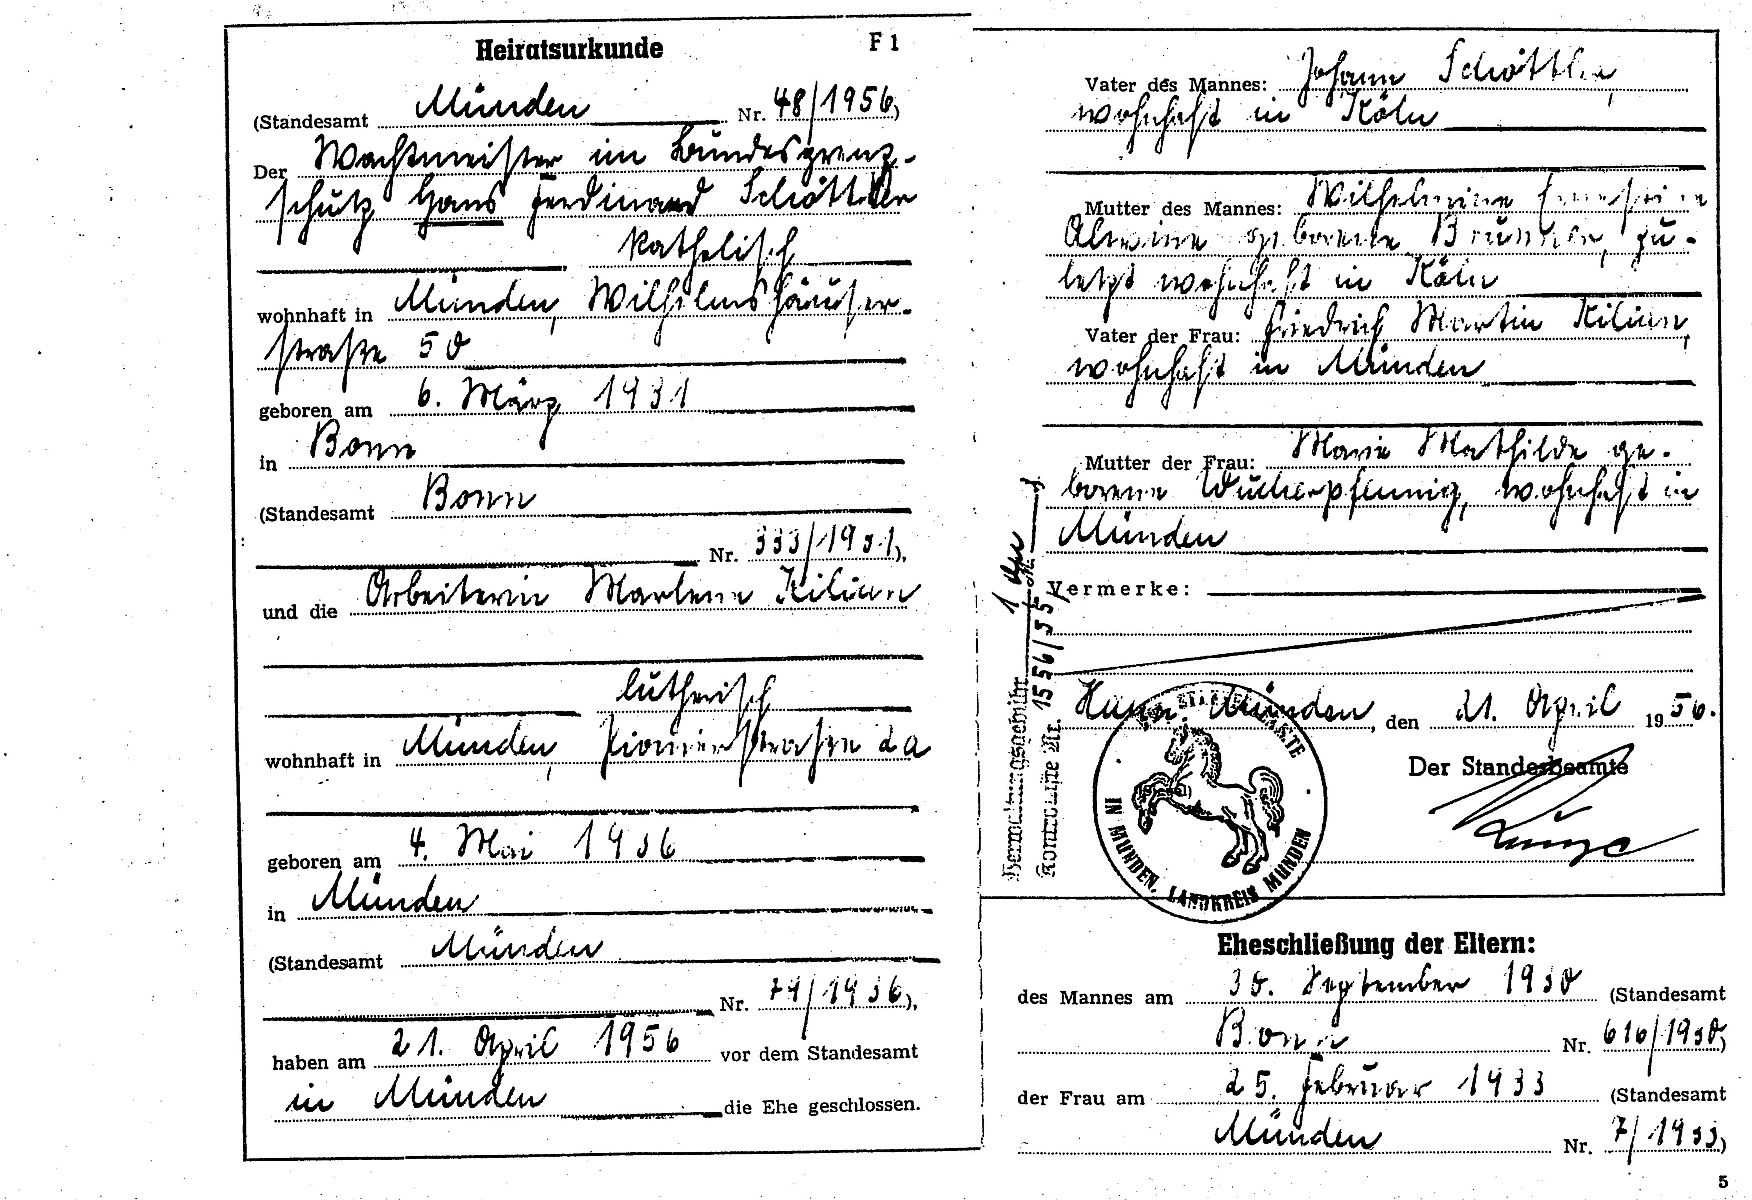 Heiratsurkunde F 1
(Standesamt Münden Nr. 48/1956)
Der Wachtmeister im Bundesgrenz-
schutz Hans Ferdinand Schöttler
katholisch
wohnhaft in Münden, Wilhelmshäuser-
straße 50
geboren am 6. März 1931
in Bonn
(Standesamt Bonn
Nr. 333/1931),
und die Arbeiterin Marlene Kilian
lutherisch
wohnhaft in Münden, Pionierstraße 2a
geboren am 4. Mai 1936
in Münden
(Standesamt Münden
Nr. 74/1936),
haben am 21. April 1956 vor dem Standesamt
in Münden die Ehe geschlossen.
Vater des Mannes: Johann Schöttler,
wohnhaft in Köln
Mutter des Mannes: Wilhelmine Ernestine
Alwine geborene Brunner, zu-
letzt wohnhaft in Köln
Vater der Frau: Friedrich Martin Kilian,
wohnhaft in Münden
Mutter der Frau: Marie Mathilde ge-
borene Wucherpfennig, wohnhaft in
Münden
Vermerke:
Hann. Münden, den 21. April 1956.
Der Standesbeamte
Kunze
Verwaltungsgebühr 1 DM
Kontrolle Nr. 1556/55
DER STANDESBEAMTE
IN MÜNDEN, LANDKREIS MÜNDEN
Eheschließung der Eltern:
des Mannes am 30. September 1930 (Standesamt
Bonn Nr. 616/1930)
der Frau am 25. Februar 1933 (Standesamt
Münden Nr. 7/1933)
5